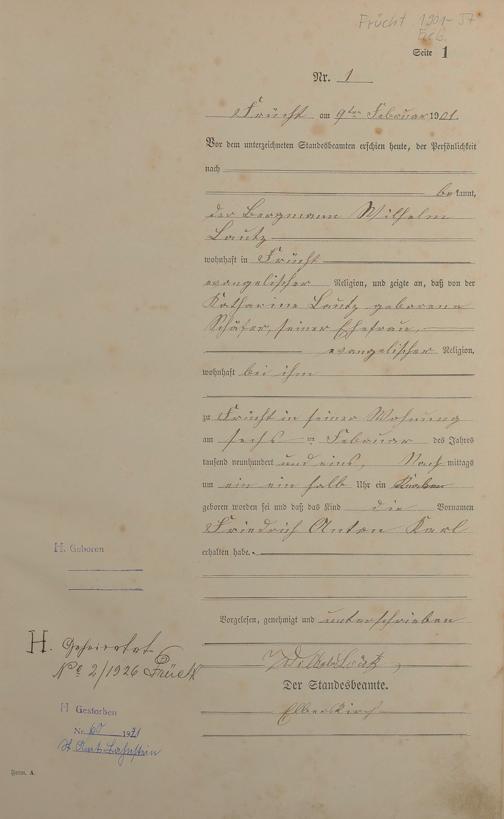 Frücht 1901-37
Geb.
Seite 1
Nr. 1
Frücht am 9ten Februar 1901.
Vor dem unterzeichneten Standesbeamten erschien heute, der Persönlichkeit
nach
bekannt,
der Bergmann Wilhelm
Lautz
wohnhaft in Frücht
evangelischer Religion, und zeigte an, daß von der
Katharine Lautz geborene
Schäfer, seiner Ehefrau,
evangelischer Religion,
wohnhaft bei ihm
zu Frücht in seiner Wohnung
am sechsten Februar des Jahres
tausend neunhundert und eins, Nachmittags
um ein ein halb Uhr ein Knabe
geboren worden sei und daß das Kind die Vornamen
Friedrich Anton Karl
erhalten habe.
Vorgelesen, genehmigt und unterschrieben
Wilhelm Lautz
Der Standesbeamte.
H. Geboren
H. Geheiratet
No 2/1926 Frücht
H Gestorben
Nr. 1971
St. Amt Lahnstein
Form. A.